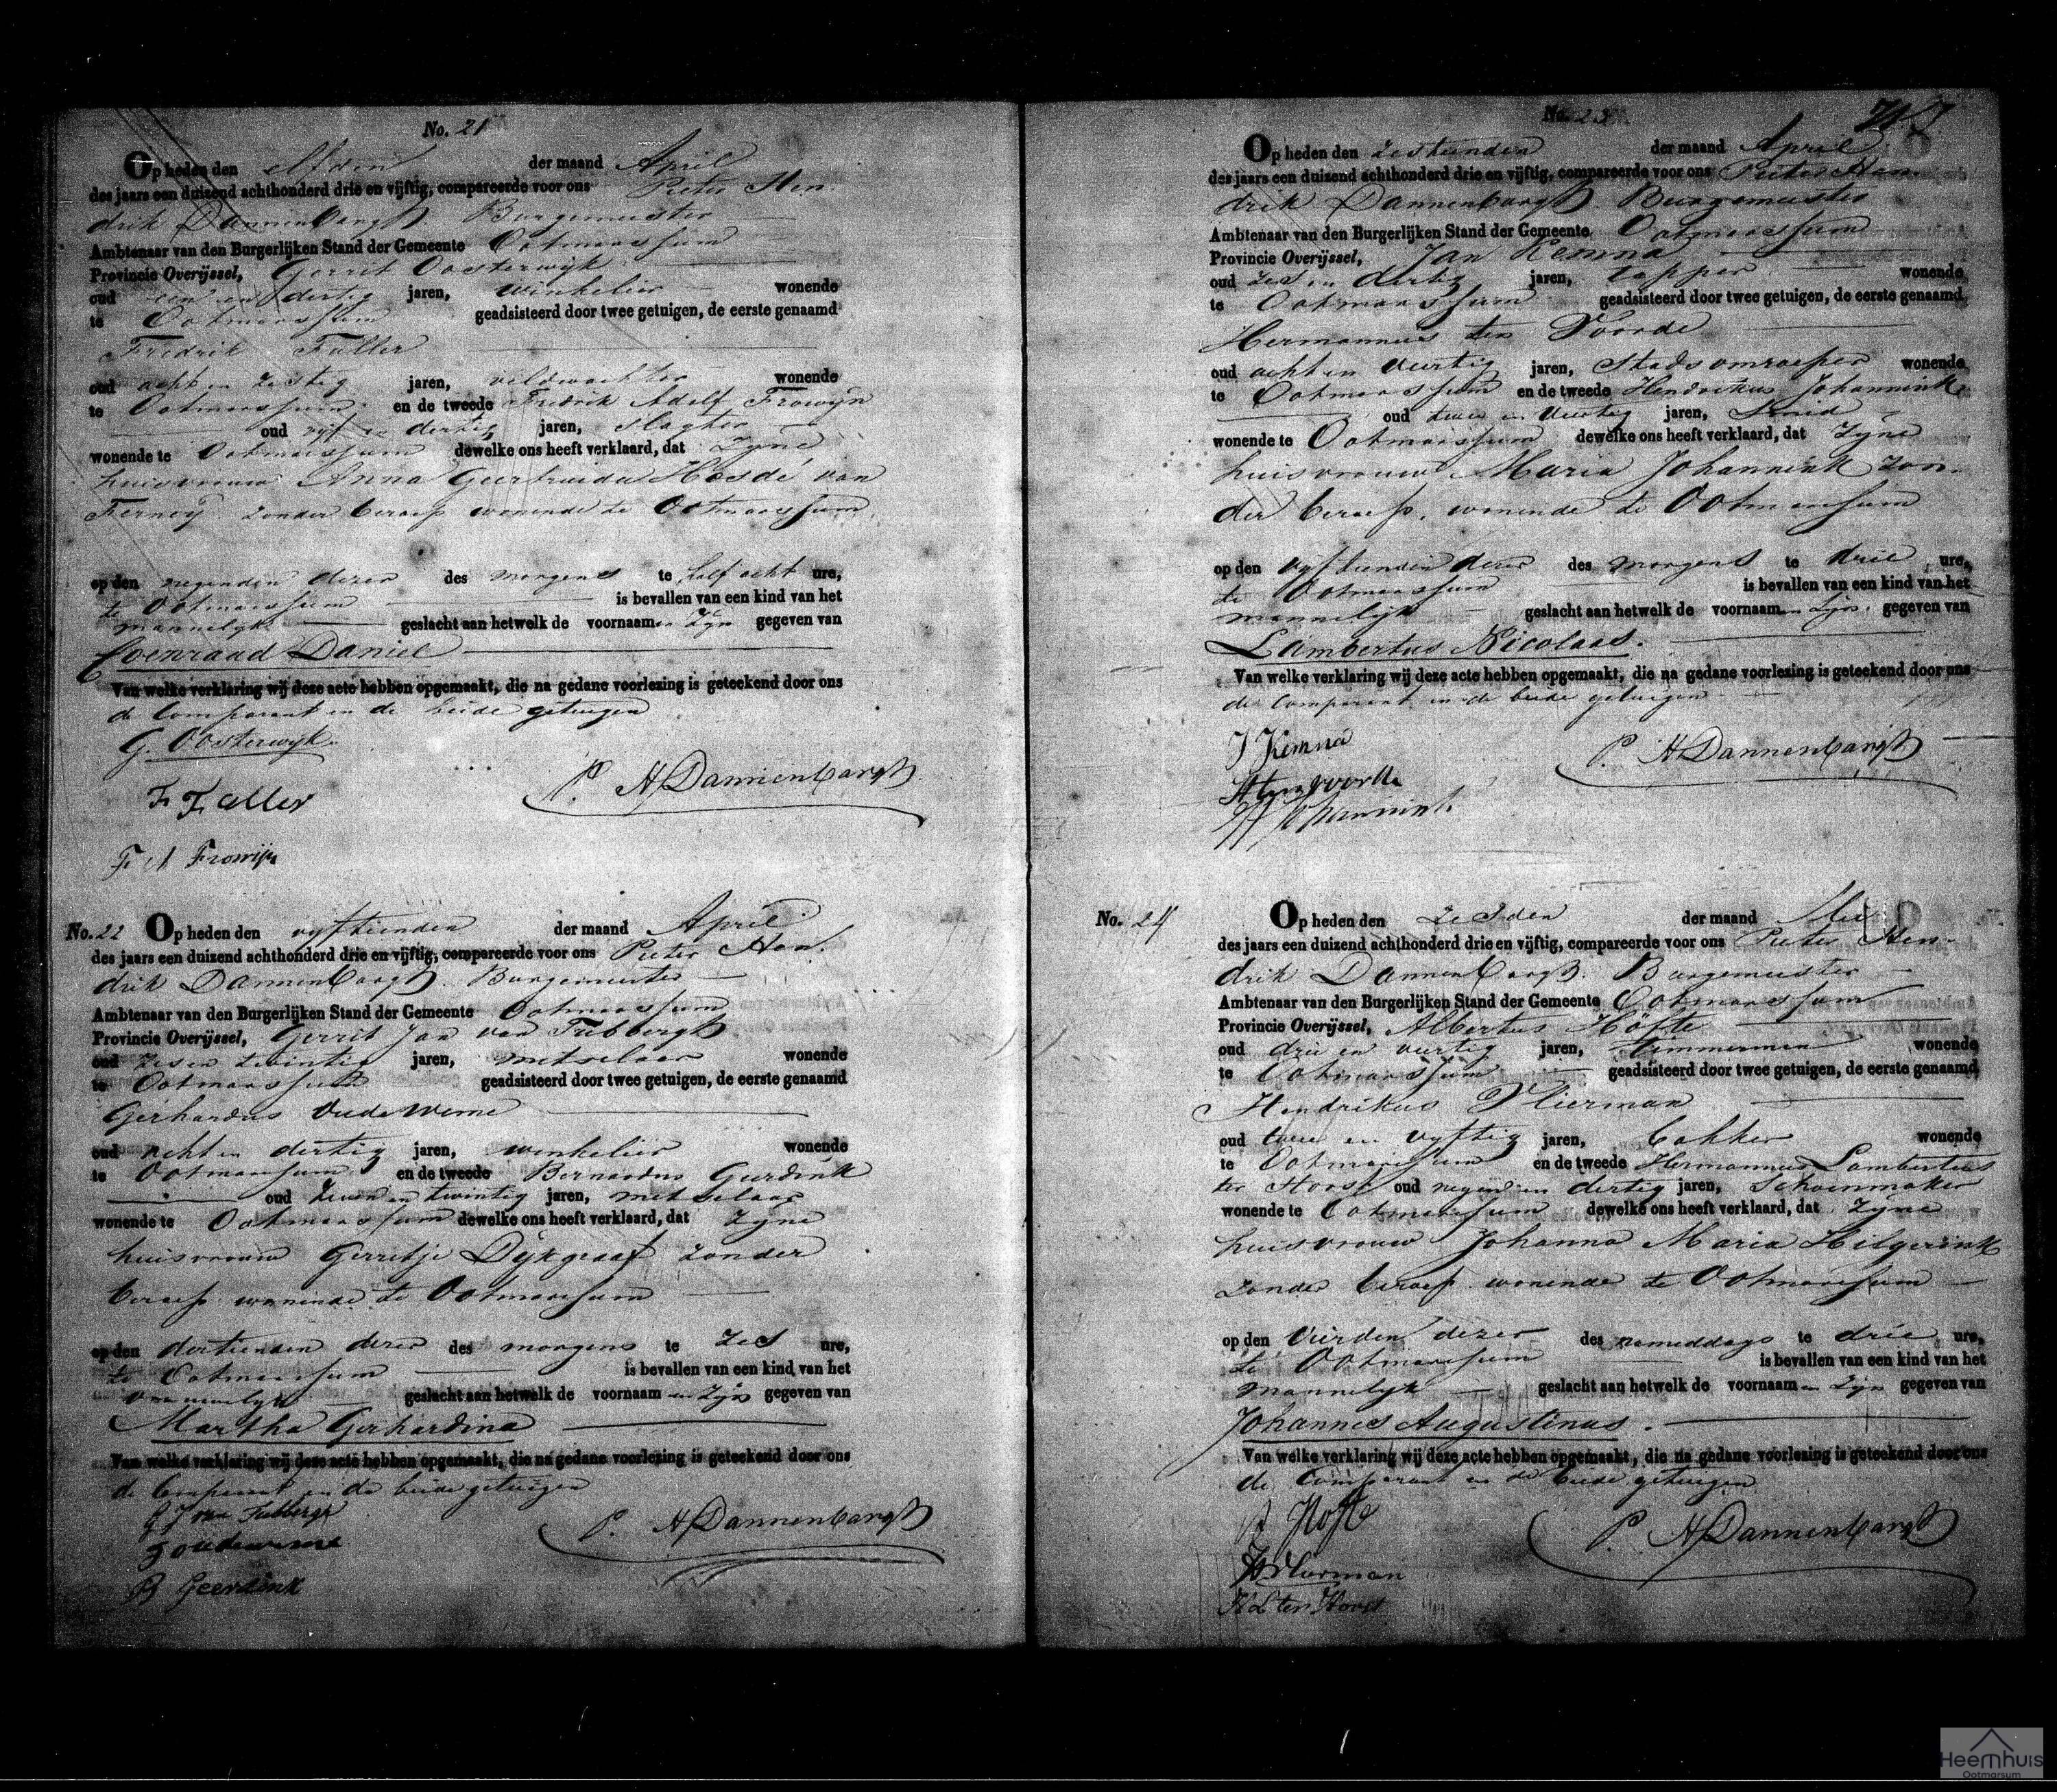 No. 21
Op heden den elfden der maand April
des jaars een duizend achthonderd drie en vijftig, compareerde voor ons Pieter Hen
drik Dannenbargh Burgemeester
Ambtenaar van den Burgerlijken Stand der Gemeente Ootmarssum
Provincie Overijssel, Gerrit Oosterwijk
oud een en dertig jaren, winkelier wonende
te Ootmarssum geadsisteerd door twee getuigen, de eerste genaamd
Fredrik Faller
oud acht en zestig jaren, veldwachter wonende
te Ootmarssum en de tweede Fredrik Adolf Frowijn
oud vijf en dertig jaren, slagter
wonende te Ootmarssum dewelke ons heeft verklaard, dat zijne
huisvrouw Anna Geertruida Hosdé van
Ferney zonder beroep wonende te Ootmarssum
op den negenden dezer des morgens te half acht ure,
te Ootmarssum is bevallen van een kind van het
mannelijk geslacht aan hetwelk de voornaamen zijn gegeven van
Coenraad Daniel
Van welke verklaring wij deze acte hebben opgemaakt, die na gedane voorlezing is geteekend door ons
de Comparant en de beide getuigen
G. Oosterwijk
P. H Dannenbargh
F. Faller
F A Frowijn
No. 22 Op heden den vijftienden der maand April
des jaars een duizend achthonderd drie en vijftig, compareerde voor ons Pieter Hen
drik Dannenbargh Burgemeester
Ambtenaar van den Burgerlijken Stand der Gemeente Ootmarssum
Provincie Overijssel, Gerrit Jan van Tubbergh
oud zes en twintig jaren, metselaar wonende
te Ootmarssum geadsisteerd door twee getuigen, de eerste genaamd
Gerhardus Oude Weme
oud acht en dertig jaren, winkelier wonende
te Ootmarssum en de tweede Bernardus Geerdink
oud zeven en twintig jaren, metselaar
wonende te Ootmarssum dewelke ons heeft verklaard, dat zijne
huisvrouw Gerritje Dijkgraaf zonder
beroep wonende te Ootmarssum
op den dertienden dezer des morgens te zes ure,
te Ootmarssum is bevallen van een kind van het
vrouwelijk geslacht aan hetwelk de voornaam en zijn gegeven van
Martha Gerhardina
Van welke verklaring wij deze acte hebben opgemaakt, die na gedane voorlezing is geteekend door ons
de Comparant en de beide getuigen
G J van Tubbergh
P. H Dannenbargh
G oudeweme
B Geerdink
No. 23
Op heden den zestienden der maand April
des jaars een duizend achthonderd drie en vijftig, compareerde voor ons Pieter Hen
drik Dannenbargh Burgemeester
Ambtenaar van den Burgerlijken Stand der Gemeente Ootmarssum
Provincie Overijssel, Jan Kemna
oud zes en dertig jaren, tapper wonende
te Ootmarssum geadsisteerd door twee getuigen, de eerste genaamd
Hermannus ten Voorde
oud acht en veertig jaren, Stads omroeper wonende
te Ootmarssum en de tweede Hendrikus Johannink
oud twee en veertig jaren, Smid
wonende te Ootmarssum dewelke ons heeft verklaard, dat zijne
huisvrouw Maria Johannink zon
der beroep, wonende te Ootmarssum
op den vijftienden dezer des morgens te drie ure,
te Ootmarssum is bevallen van een kind van het
mannelijk geslacht aan hetwelk de voornaamen zijn gegeven van
Lambertus Nicolaas.
Van welke verklaring wij deze acte hebben opgemaakt, die na gedane voorlezing is geteekend door ons
de Comparant en de beide getuigen
J Kemna
P. H Dannenbargh
H tenvoorde
H Johannink
No. 24 Op heden den zesden der maand Mei
des jaars een duizend achthonderd drie en vijftig, compareerde voor ons Pieter Hen
drik Dannenbargh Burgemeester
Ambtenaar van den Burgerlijken Stand der Gemeente Ootmarssum
Provincie Overijssel, Albertus Höfte
oud drie en veertig jaren, timmerman wonende
te Ootmarssum geadsisteerd door twee getuigen, de eerste genaamd
Hendrikus Vlierman
oud twee en vijftig jaren, bakker wonende
te Ootmarssum en de tweede Hermannus Lambertus
ter Horst oud negen en dertig jaren, Schoenmaker
wonende te Ootmarssum dewelke ons heeft verklaard, dat zijne
huisvrouw Johanna Maria Hilgerink
zonder beroep wonende te Ootmarssum
op den vierden dezer des nameddags te drie ure,
te Ootmarssum is bevallen van een kind van het
mannelijk geslacht aan hetwelk de voornaam en zijn gegeven van
Johannes Augustinus.
Van welke verklaring wij deze acte hebben opgemaakt, die na gedane voorlezing is geteekend door ons
de Comparant en de beide getuigen
A Hofte
P. H Dannenbargh
H Vlierman
H L ter Horst
Heemhuis
Ootmarsum